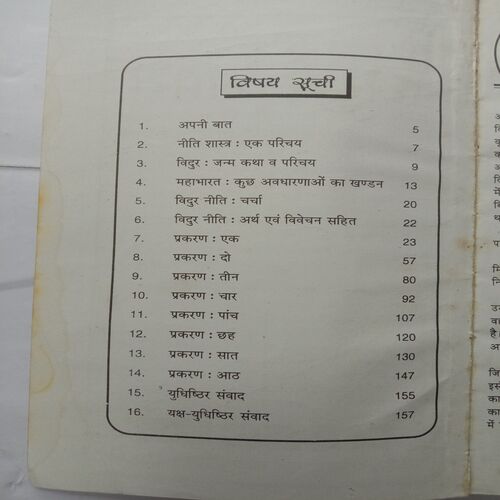 विषय सूची
1. अपनी बात 5
2. नीति शास्त्र : एक परिचय 7
3. विदुर : जन्म कथा व परिचय 9
4. महाभारत : कुछ अवधारणाओं का खण्डन 13
5. विदुर नीति : चर्चा 20
6. विदुर नीति : अर्थ एवं विवेचन सहित 22
7. प्रकरण : एक 23
8. प्रकरण : दो 57
9. प्रकरण : तीन 80
10. प्रकरण : चार 92
11. प्रकरण : पांच 107
12. प्रकरण : छह 120
13. प्रकरण : सात 130
14. प्रकरण : आठ 147
15. युधिष्ठिर संवाद 155
16. यक्ष-युधिष्ठिर संवाद 157